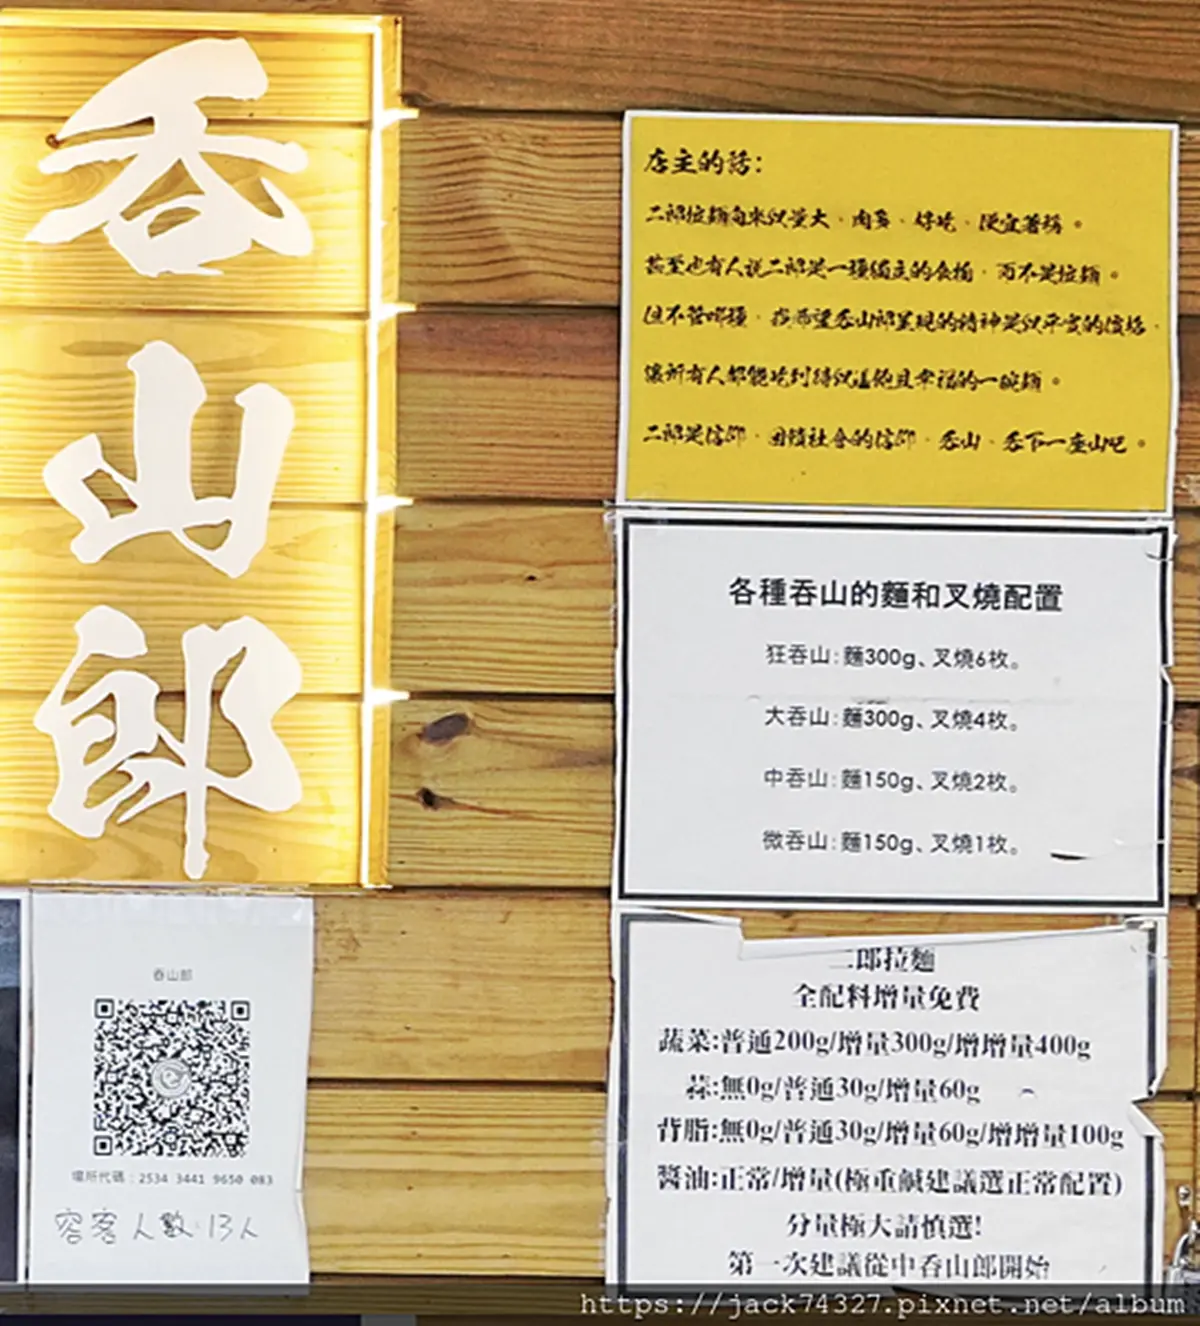 吞
山
郎
店主的話:
二郎拉麵向來以量大、肉多、好吃、便宜著稱。
甚至也有人說二郎是一種獨立的食物,而不是拉麵。
但不管哪種,我希望吞山郎呈現的精神是以平實的價格,
讓所有人都能吃到得以溫飽且幸福的一碗麵。
二郎是信仰,回饋社會的信仰,吞山、吞下一座山吧。
各種吞山的麵和叉燒配置
狂吞山:麵300g、叉燒6枚。
大吞山:麵300g、叉燒4枚。
中吞山:麵150g、叉燒2枚。
微吞山:麵150g、叉燒1枚。
二郎拉麵
全配料增量免費
蔬菜:普通200g/增量300g/增增量400g
蒜:無0g/普通30g/增量60g
背脂:無0g/普通30g/增量60g/增增量100g
醬油:正常/增量(極重鹹建議選正常配置)
分量極大請慎選!
第一次建議從中吞山郎開始
吞山郎
場所代碼:2534 3441 9650 083
容客人數:13人
https://jack74327.pixnet.net/album